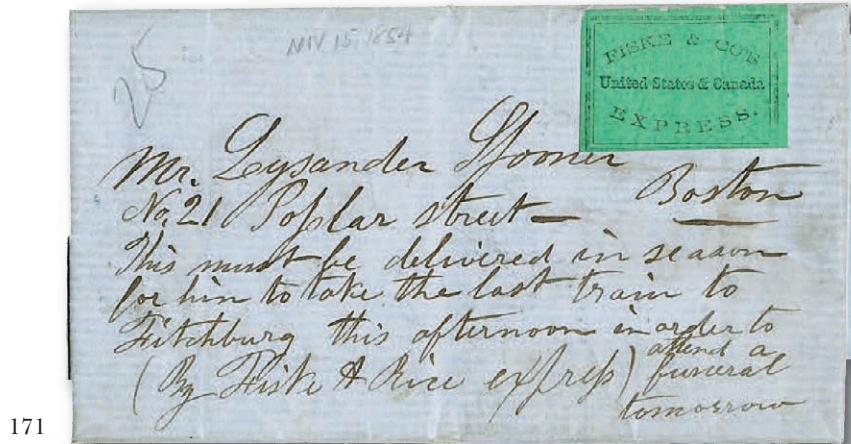 25
NOV 15, 1854
FISKE & CO'S
United States & Canada
EXPRESS.
Mr. Lysander Spooner
No. 21 Poplar street — Boston
This must be delivered in season
for him to take the last train to
Fitchburg this afternoon in order to
attend a
(By Fiske & Rice express) funeral
tomorrow
171